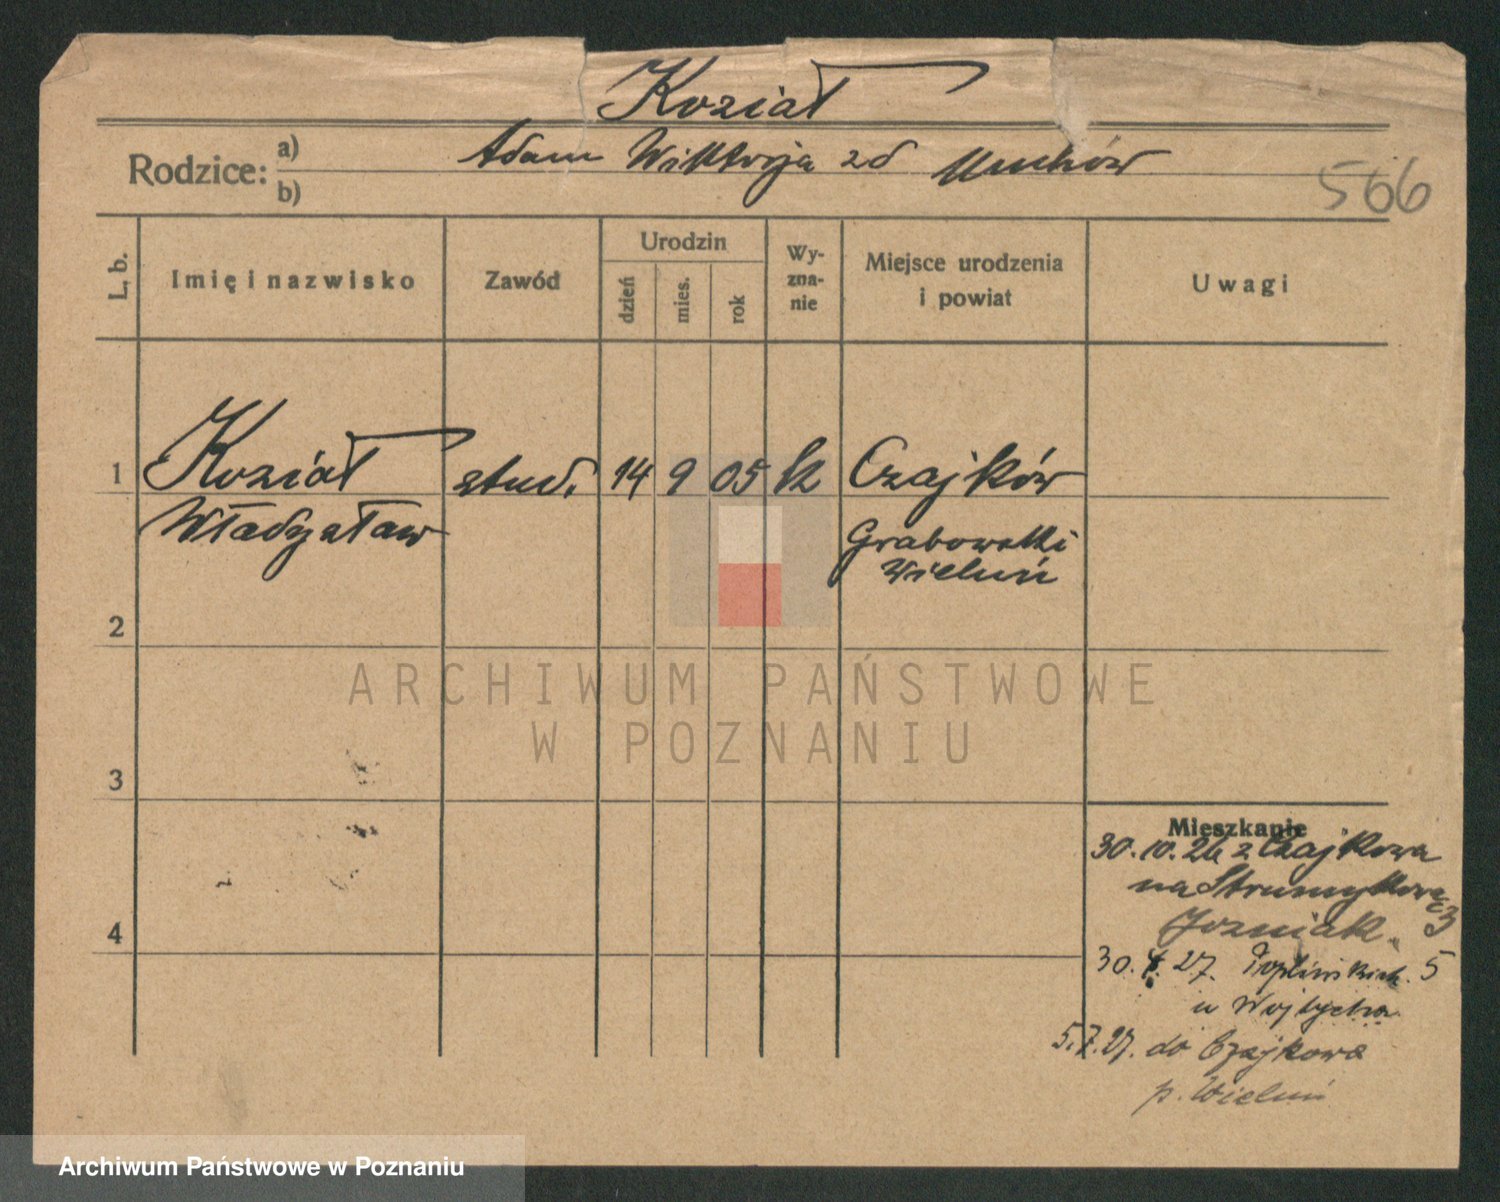 Koział
Rodzice: a) Adam Wiktorja zd
b)
566
L. b.
Imię i nazwisko
Zawód
Urodzin
dzień
mies.
rok
Wy-
zna-
nie
Miejsce urodzenia
i powiat
Uwagi
1 Koział stud. 14 9 05 k Czajków
Władysław Grabowski
Wieluń
2
ARCHIWUM PAŃSTWOWE
W POZNANIU
3
4
Mieszkanie
30.10.26 z Czajkowa
na Strumykową 3
Jozwiak
30. 27. 5
u Wojtycha
5.7.27. do Czajkowa
p. Wieluń
Archiwum Państwowe w Poznaniu